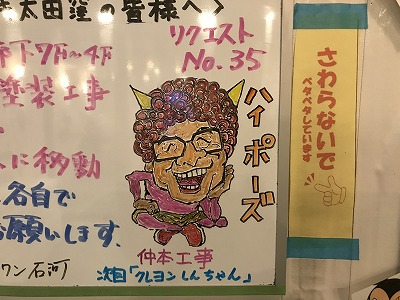 太田窪の皆様へ>
リクエスト
No.35
下7万~4万
塗装工事
に移動
各自で
お願いします。
ワン石河
ハイポーズ
仲本工事
次回「クレヨンしんちゃん」
さわらないで
ベタベタしています